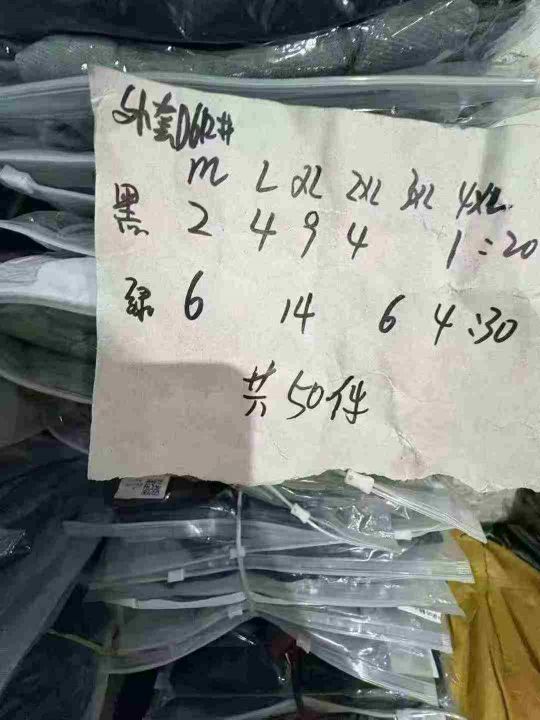 外套D612#
M L XL 2XL 3XL 4XL
黑 2 4 9 4 1:20
绿 6 14 6 4:30
共50件